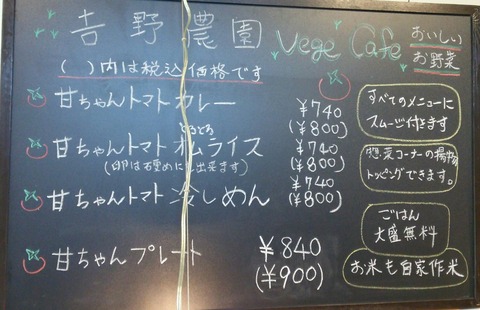 吉野農園 Vege Cafe
おいしい
お野菜
( )内は税込価格です
甘ちゃんトマトカレー ¥740
(¥800)
とろとろ
甘ちゃんトマトオムライス ¥740
(卵は固めにも出来ます) (¥800)
甘ちゃんトマト冷しめん ¥740
(¥800)
甘ちゃんプレート ¥840
(¥900)
すべてのメニューに
スムージー付きます
惣菜コーナーの揚物
トッピングできます。
ごはん
大盛無料
お米も自家作米